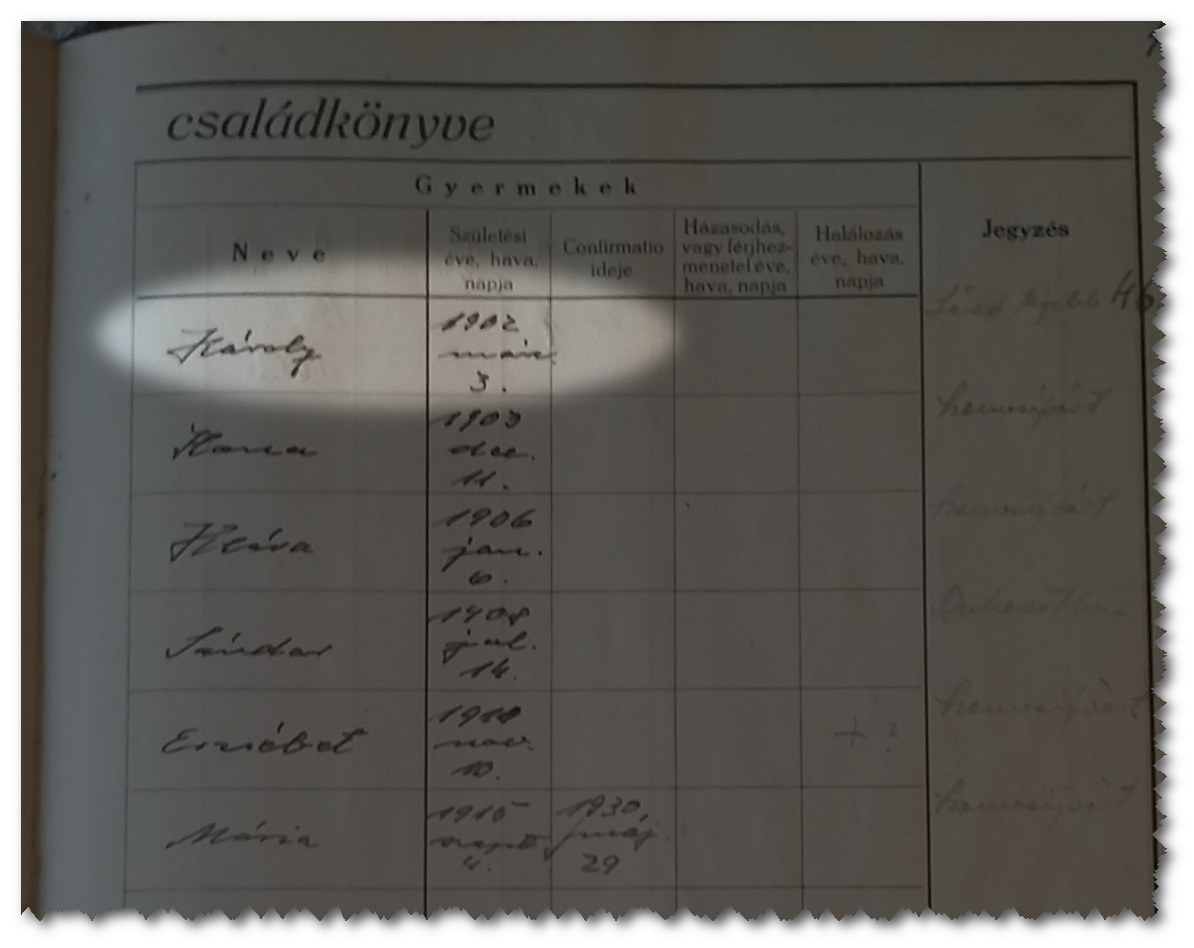 családkönyve
Gyermekek
Neve
Születési
éve, hava,
napja
Confirmatio
ideje
Házasodás,
vagy férjhez-
menetel éve,
hava, napja
Halálozás
éve, hava,
napja
Jegyzés
Károly
1902
már.
3.
Ilona
1903
dec.
11.
Klára
1906
jan.
6.
Sándor
1908
jul.
14.
Erzsébet
nov.
10.
+ ?
Mária
1915
szept.
4.
1930,
máj.
29